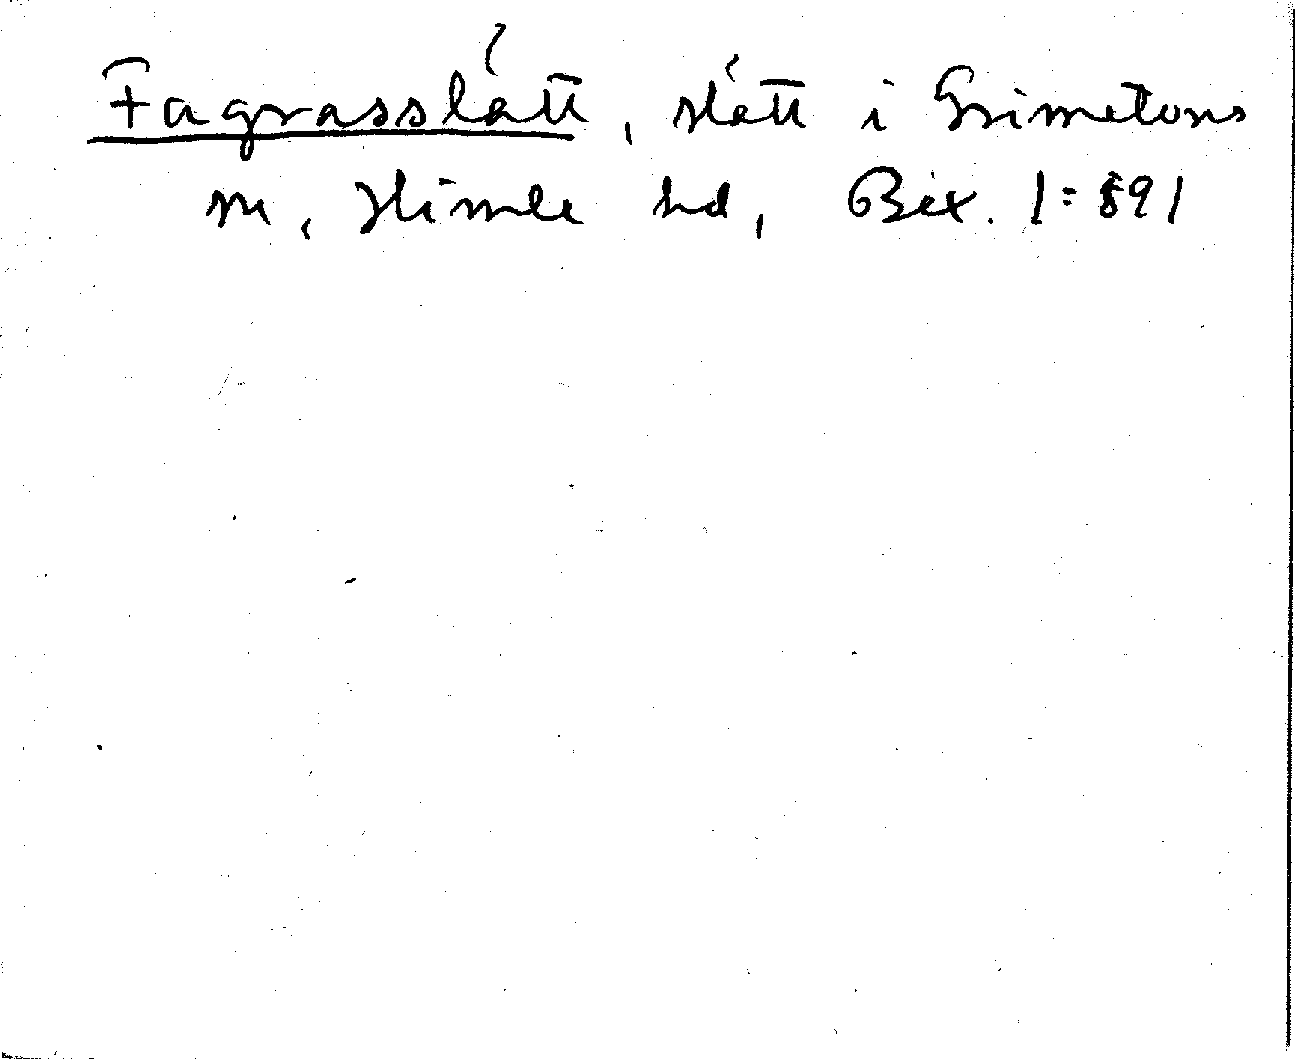 Fagrasslått, slått i Grimetons
sn, Himle hd, Bex. 1:891